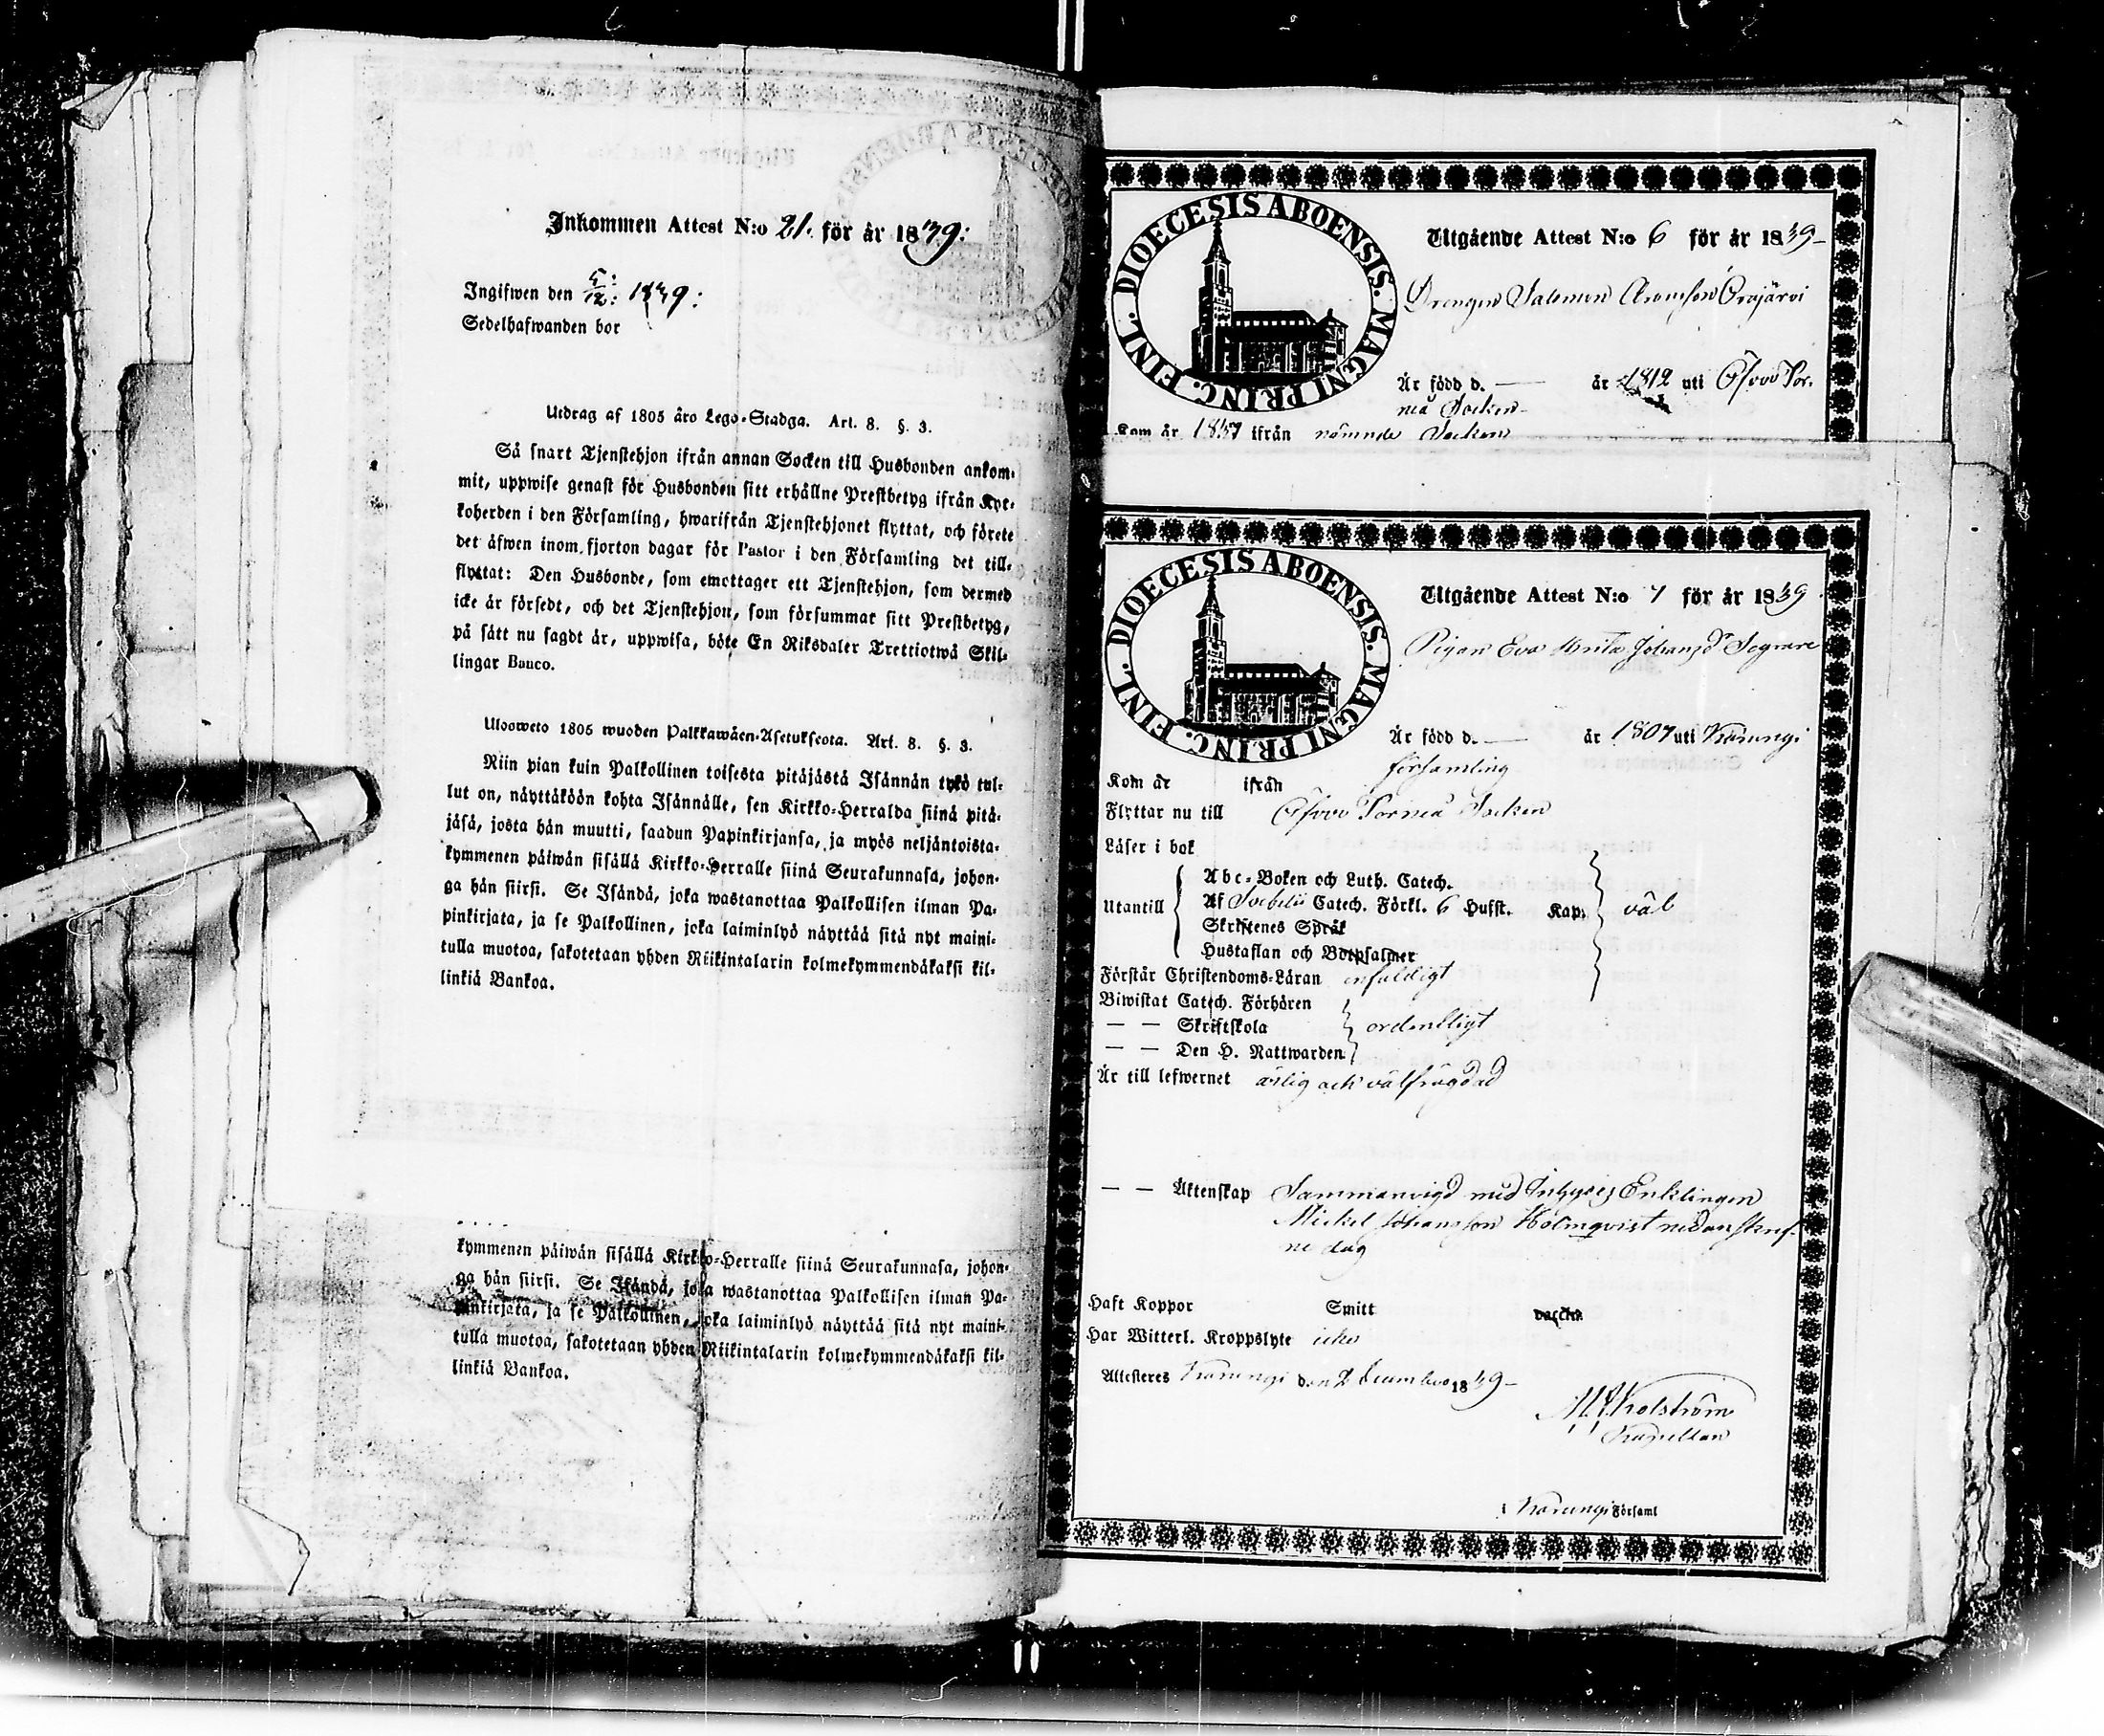 Inkommen Attest N:o 21. för år 1839:
Ingifwen den 5/12: 1839:
Sedelhafwanden bor
Utdrag af 1805 års Lego-Stadga. Art. 8. §. 3.
Så snart Tjenstehjon ifrån annan Socken till Husbonden ankom-
mit, uppwise genast för Husbonden sitt erhållne Prestbetyg ifrån Kyr-
koherden i den Församling, hwarifrån Tjenstehjonet flyttat, och förete
det äfwen inom fjorton dagar för Pastor i den Församling det till-
flyttat: Den Husbonde, som emottager ett Tjenstehjon, som dermed
icke är försedt, och det Tjenstehjon, som försummar sitt Prestbetyg,
på sätt nu sagdt är, uppwisa, böte En Riksdaler Trettiotwå Skil-
lingar Banco.
Ulosweto 1805 wuoden Palkkawäen-Asetuksesta. Art. 8. §. 3.
Niin pian kuin Palkollinen toisesta pitäjästä Isännän tykö tul-
lut on, näyttäköön kohta Isännälle, sen Kirkko-Herralda siinä pitä-
jäsä, josta hän muutti, saadun Papinkirjansa, ja myös neljäntoista-
kymmenen päiwän sisällä Kirkko-Herralle siinä Seurakunnasa, johon-
ga hän siirsi. Se Isändä, joka wastanottaa Palkollisen ilman Pa-
pinkirjata, ja se Palkollinen, joka laiminlyö näyttää sitä nyt maini-
tulla muotoa, sakotetaan yhden Riikintalarin kolmekymmendäkaksi kil-
linkiä Bankoa.
kymmenen päiwän sisällä Kirkko-Herralle siinä Seurakunnasa, johon-
ga hän siirsi. Se Isändä, joka wastanottaa Palkollisen ilman Pa-
pinkirjata, ja se Palkollinen, joka laiminlyö näyttää sitä nyt maini-
tulla muotoa, sakotetaan yhden Riikintalarin kolmekymmendäkaksi kil-
linkiä Bankoa.
DIOECESIS ABOENSIS. MAGNI PRINC. FINL.
Utgående Attest N:o 6 för år 1839
Drengen Salomon Aronsson Orajärvi
Är född d. — år 1812 uti Öfver Tor-
neå Socken
Kom år 1837 ifrån nämnde Socken
DIOECESIS ABOENSIS. MAGNI PRINC. FINL.
Utgående Attest N:o 7 för år 1839
Pigan Eva Brita Johansdr
Är född d. — år 1807 uti Karungi
församling
Kom år ifrån
Flyttar nu till Öfver Torneå Socken
Läser i bok
Utantill
Abc-Boken och Luth. Catech.
Af Svebelii Catech. Förkl. 6 Hufst. Kap. väl
Skriftenes Språk
Hustaflan och Botpsalmer
Förstår Christendoms-Läran enfaldigt
Biwistat Catech. Förhören
— — Skriftskola ordentligt
— — Den H. Nattwarden
Är till lefwernet ärlig och välfrägdad
— — Äktenskap Sammanvigd med Inhyses Enklingen
Mickel Johansson Holmqvist nedanskref-
ne dag
Haft Koppor Smitt vaccin.
Har Witterl. Kroppslyte icke
Attesteres Karungi den 2 December 1839
Kapellan
i Karungi Församl